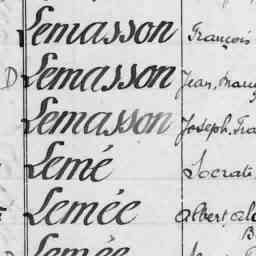 Lemasson François
D Lemasson Jean, Marc
Lemasson Joseph, Fra
Lemé Socrate
Lemée Albert,
Lemée